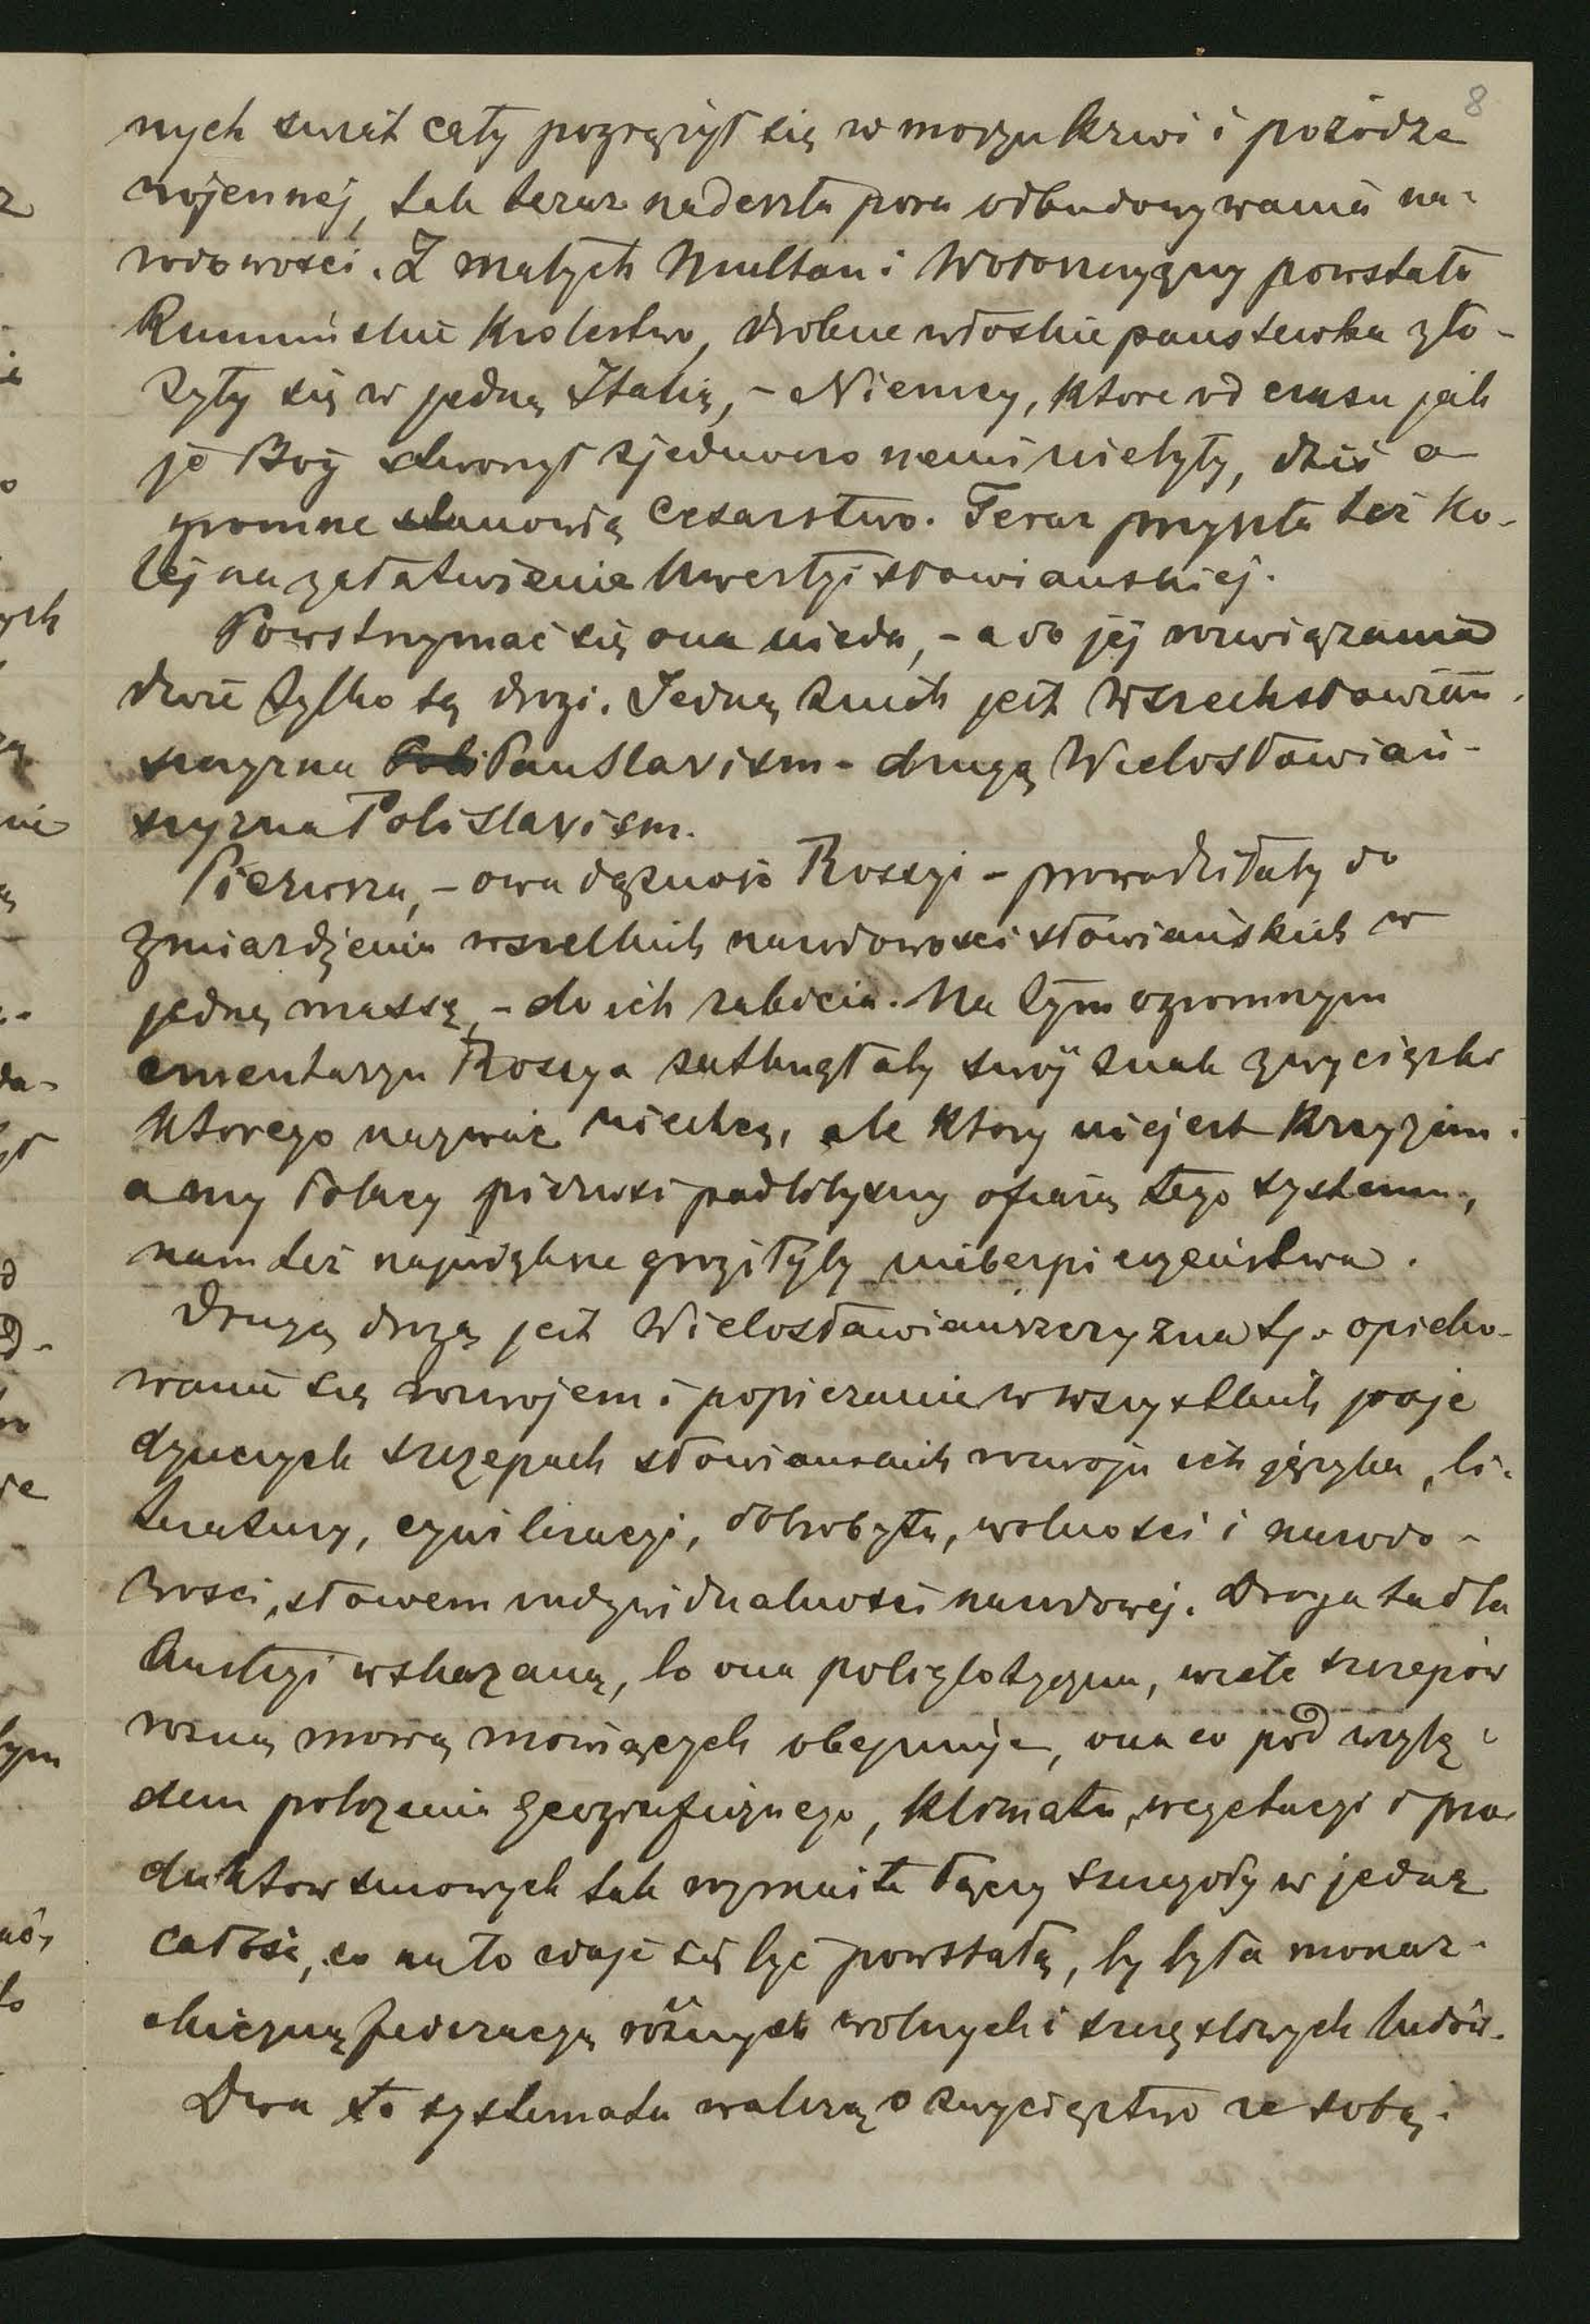 8
nych świat cały pogrążył się w morzu krwi i pożodze
wojennej, tak teraz nadeszła pora odbudowywania na-
rodowości. Z małych Multan i Wołoszczyzny powstało
Rumuńskie Krolestwo, drobne włoskie panstewka zło-
żyły się w jedną Italię, - Niemcy, ktore od czasu jak
je Bóg stworzył zjednoczonemi nie były, dziś o-
gromne stanowią Cesarstwo. Teraz przyszła też ko-
lej na załatwienie kwestyi słowianskiej.
Powstrzymać się ona nieda, - a do jej rozwiązania
dwie tylko są drogi. Jedną z nich jest Wszechsłowiań-
szczyzna PanSlavism - drugą Wielosłowiań-
szczyzna PoliSlavism.
Pierwsza, - owa dążność Rossyi - prowadziłaby do
zmiażdżenia wszelkich narodowosci słowiańskich w
jedną massę, - do ich zabicia. Na tym ogromnym
cmentarzu Rossya zatknęłaby swój znak zwycięzki
ktorego nazwać niechcę, ale ktory niejest Krzyżem i
a my Polacy pierwsi padlibysmy ofiarą tego systemu,
nam też największe groziłyby niebezpieczeństwa.
Drugą drogą jest Wielosławianszczyzna tj. opieko-
wanie się rozwojem i popieranie w wszystkich poje
dynczych szczepach słowianskich rozwoju ich języka, li-
teratury, cywilizacyi, dobrobytu, wolności i narodo-
wosci, słowem indywidualności narodowej. Droga ta dla
Austryi wskazaną, bo ona poliglotyczna, wiele szczepów
rożną mową mowiących obejmuje, ona co pod wzglę-
dem położenia geograficznego, klimatu, wegetacyi i pro-
duktow surowych tak rozmaite łączy szczegoły w jedną
całość, co na to zdaje się być powstałą, by była monar-
chiczną federacyą różnych wolnych i szczęsliwych ludów.
Dwa te systemata walczą o zwycięztwo ze sobą.